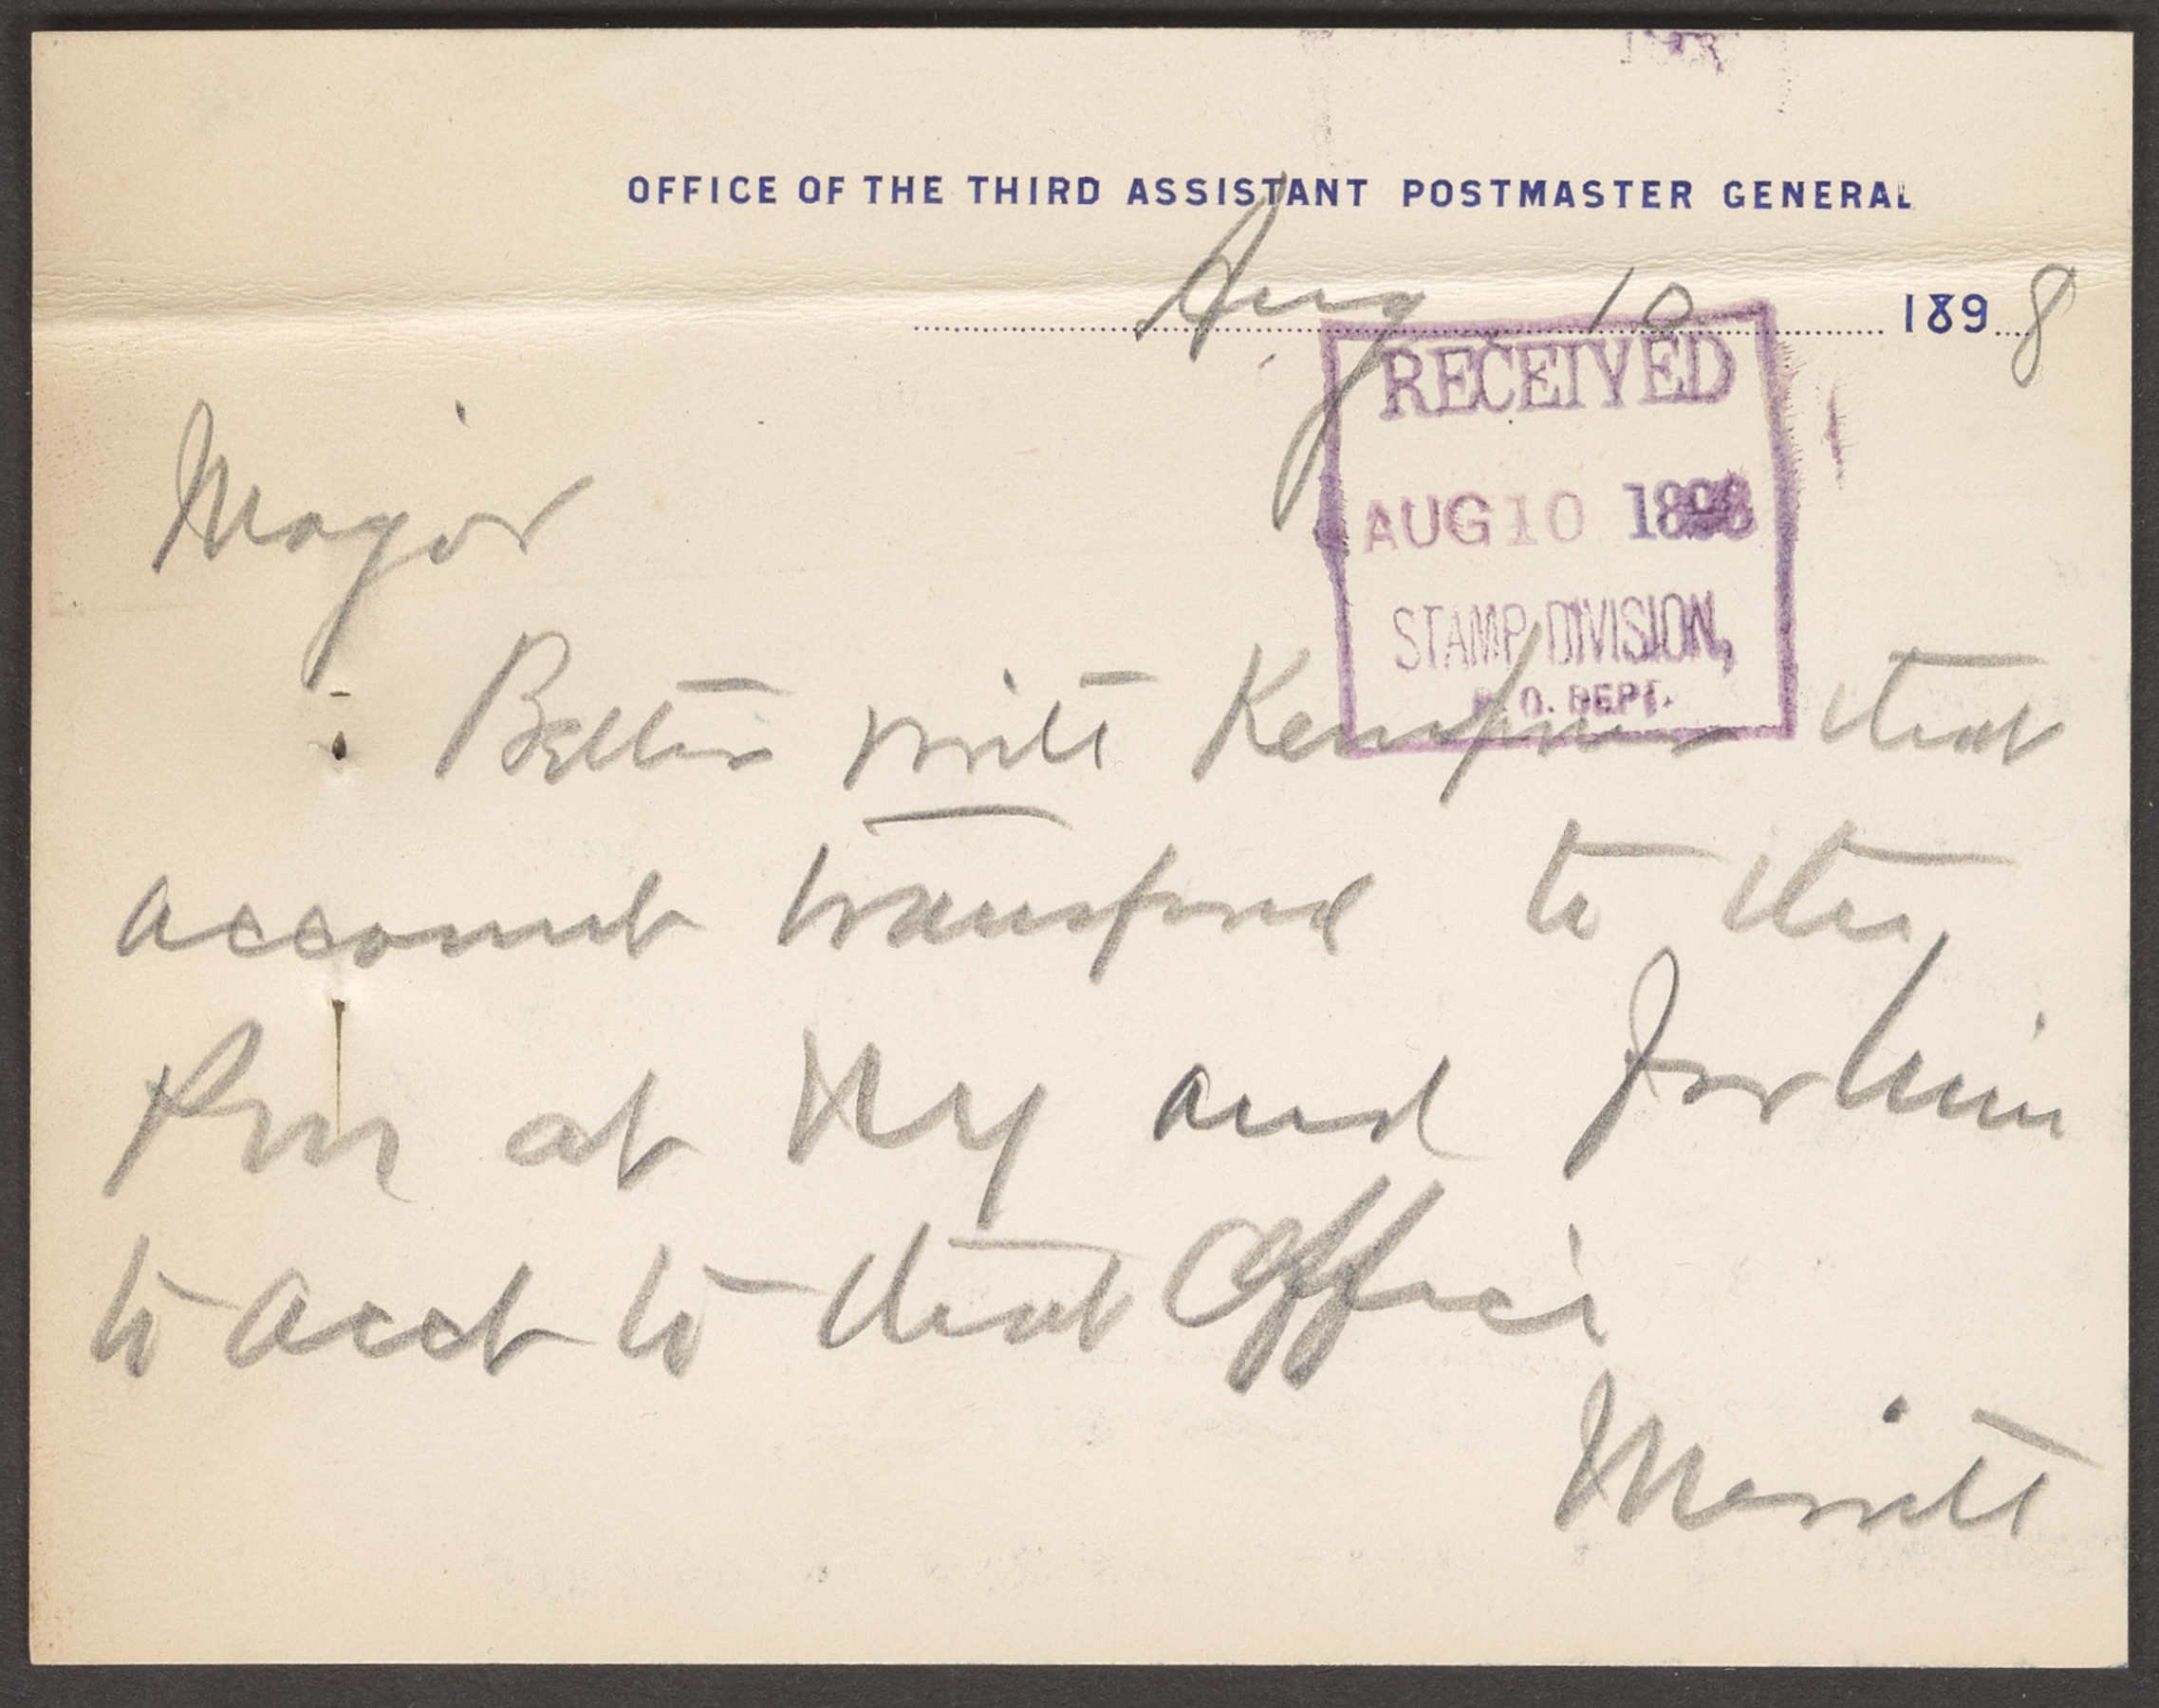 OFFICE OF THE THIRD ASSISTANT POSTMASTER GENERAL
Aug 10 1898
RECEIVED
AUG 10 1898
STAMP DIVISION,
P. O. DEPT.
Major
Better write Kempner that
account transferred to the
Pm at NY and for him
to acct to that Office
Merritt